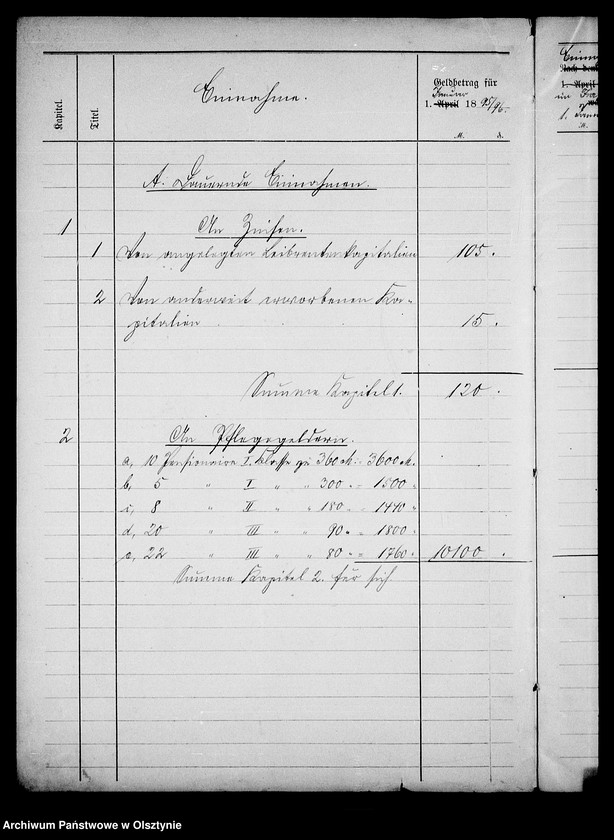 Kapitel.
Titel.
Einnahme.
Geldbetrag für
Januar
1. April 1895/96.
M. ₰.
A. Dauernde Einnahmen.
1 An Zinsen.
1 Von angelegten Leibrentenkapitalien 105 .
2 Von anderweit erworbenen Ka-
pitalien 15 .
Summe Kapitel 1. 120 .
2 An Pflegegeldern.
a, 10 Pensionaire I. Klasse zu 360 M. = 3600 M.
b, 5 " I " " 300 " = 1500 "
c, 8 " II " " 180 " = 1440 "
d, 20 " III " " 90 " = 1800 "
e, 22 " III " " 80 " = 1760 " 10100 .
Summe Kapitel 2. für sich
1. April
M.
Archiwum Państwowe w Olsztynie